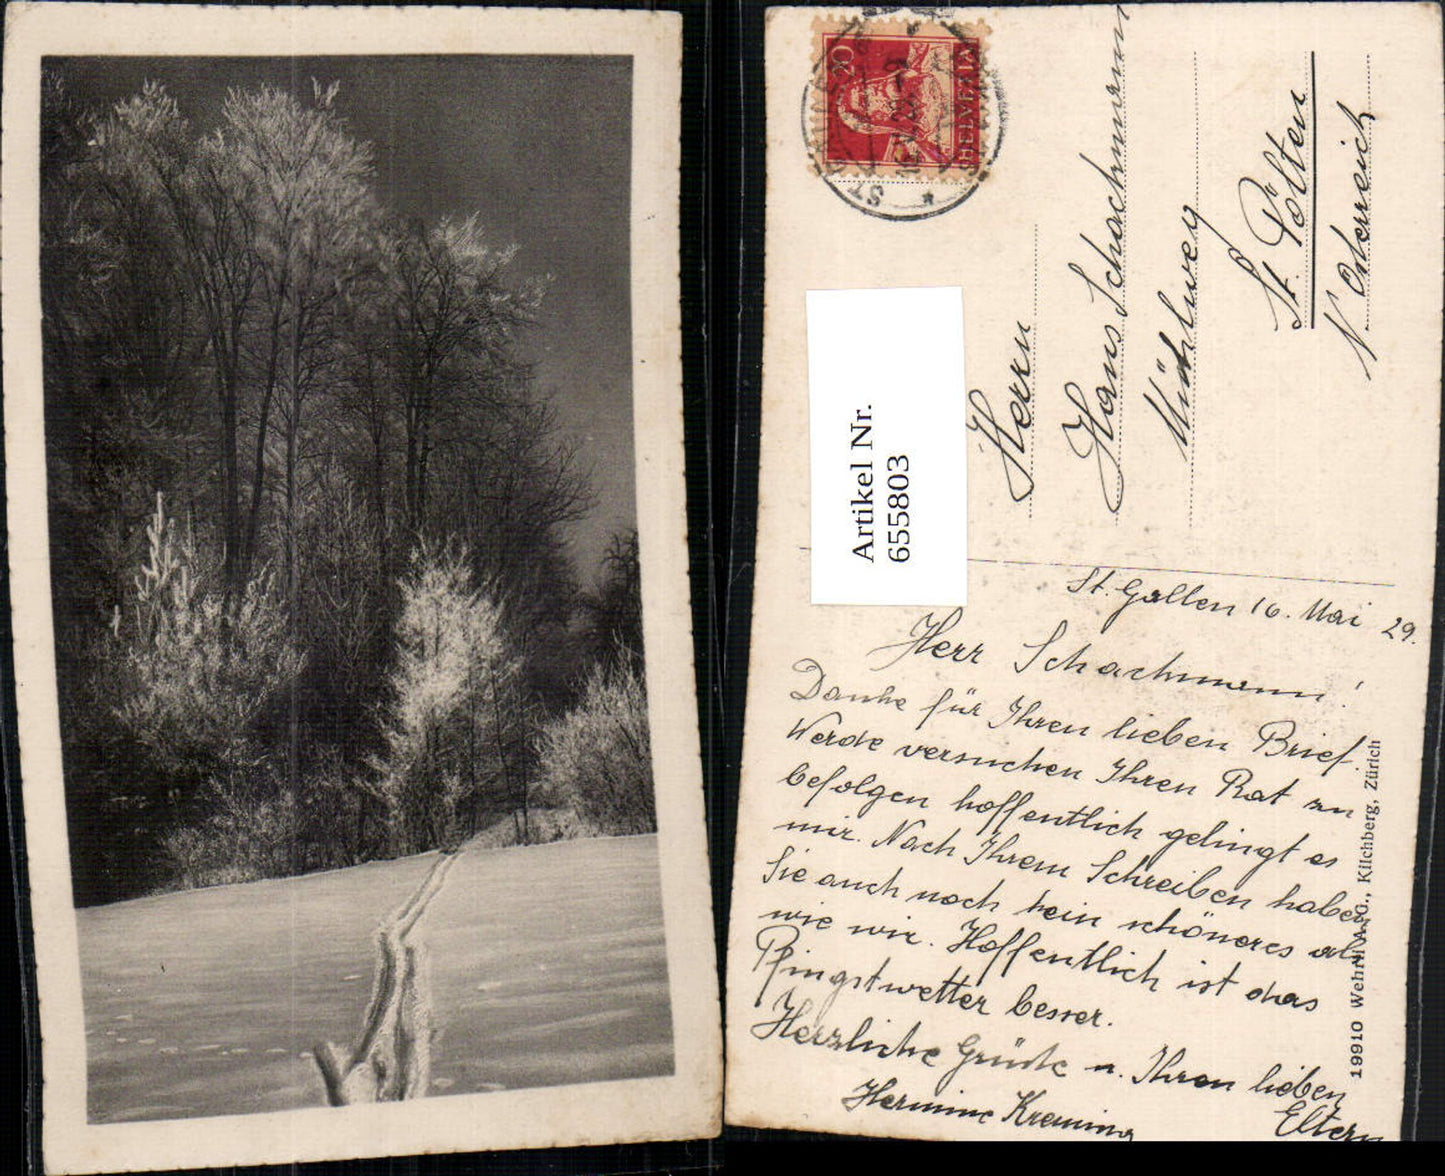 20
HELVETIA
ST. GALLEN
Artikel Nr.
655803
Herrn
Hans Schachmann
Mühlweg
St. Pölten
N. Österreich
St. Gallen 16. Mai 29.
Herr Schachmann!
Danke für Ihren lieben Brief.
Werde versuchen Ihren Rat zu
befolgen hoffentlich gelingt es
mir. Nach Ihrem Schreiben haben
Sie auch noch kein schöneres als
wie wir. Hoffentlich ist das
Pfingstwetter besser.
Herzliche Grüße u. Ihren lieben
Eltern
Hermine
19910 Wehrli A.-G., Kilchberg, Zürich